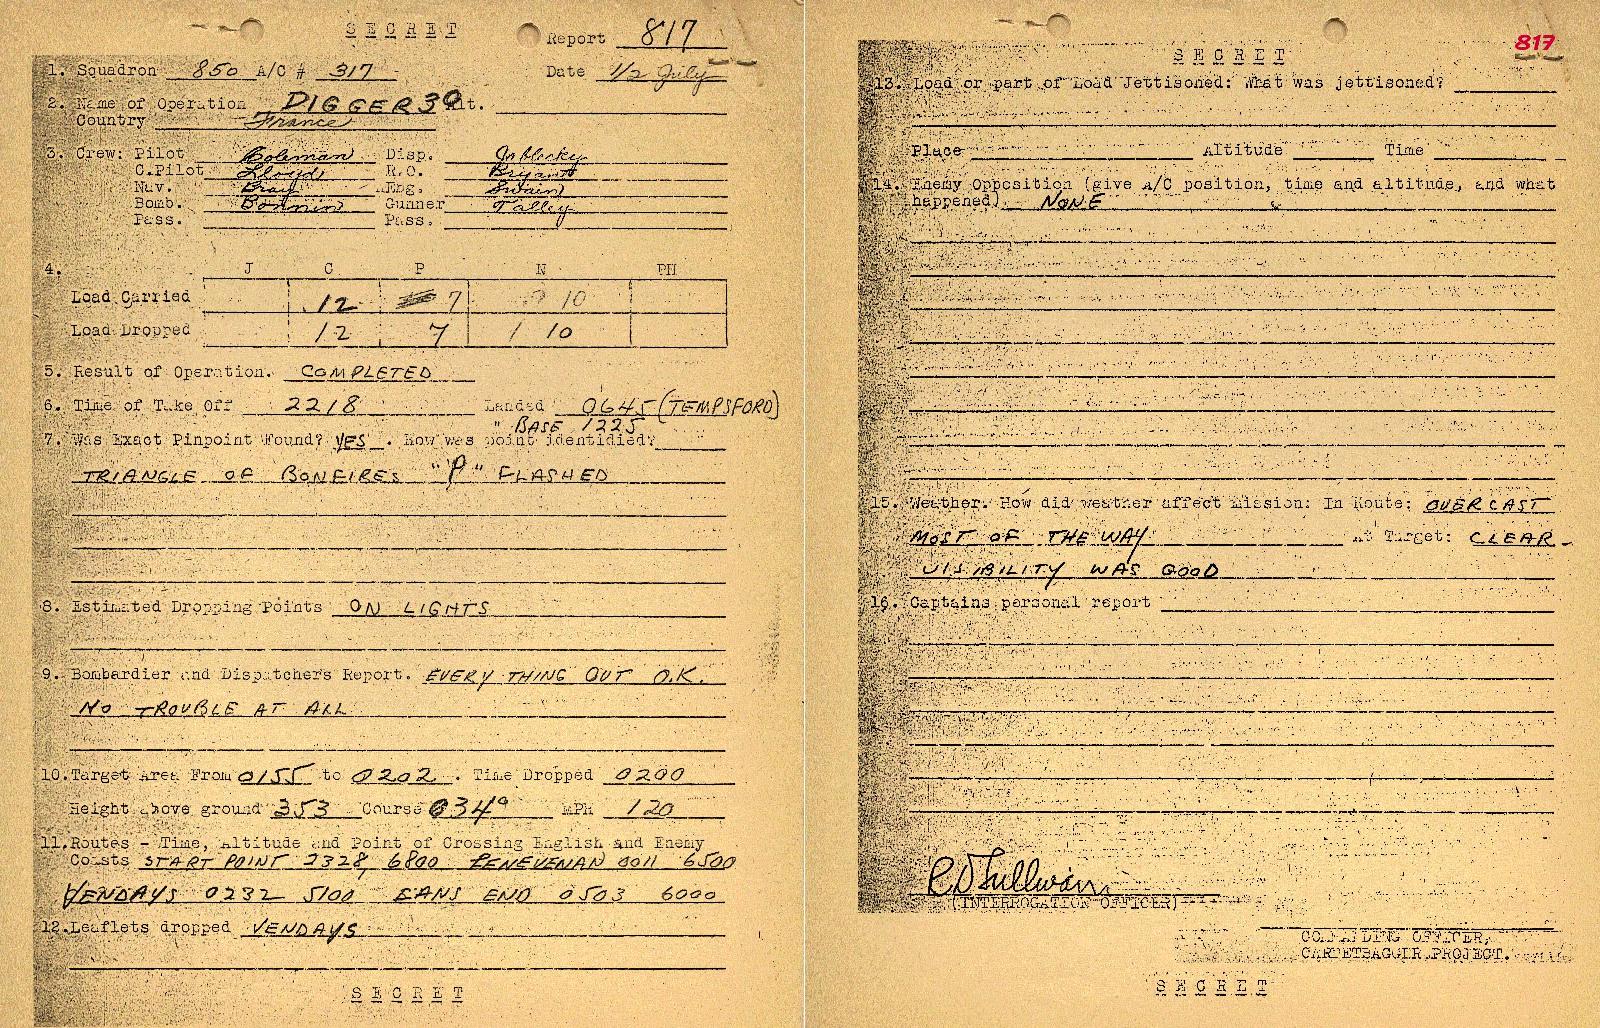 SECRET
Report 817
1. Squadron 850 A/C # 317 Date 1/2 July
2. Name of Operation DIGGER 39 Alt.
Country France
3. Crew: Pilot Coleman Disp.
C.Pilot Lloyd R.O. Bryant
Nav. Bray Eng. Swain
Bomb. Bonnin Gunner Talley
Pass. Pass.
4. J C P N PH
Load Carried 12 7 10
Load Dropped 12 7 10
5. Result of Operation. COMPLETED
6. Time of Take Off 2218 Landed 0645 (TEMPSFORD)
" BASE 1225
7. Was Exact Pinpoint Found? YES . How was point identidied?
TRIANGLE OF BONFIRES "P" FLASHED
8. Estimated Dropping Points ON LIGHTS
9. Bombardier and Dispatchers Report. EVERY THING OUT O.K.
NO TROUBLE AT ALL
10. Target Area From 0155 to 0202 . Time Dropped 0200
Height above ground 353 Course 034° MPH 120
11. Routes - Time, Altitude and Point of Crossing English and Enemy
Coasts START POINT 2328, 6800 PENEVENAN 0011 6500
VENDAYS 0232 5100 LANS END 0503 6000
12. Leaflets dropped VENDAYS
SECRET
817
SECRET
13. Load or part of Load Jettisoned: What was jettisoned?
Place Altitude Time
14. Enemy Opposition (give A/C position, time and altitude, and what
happened). NONE
15. Weather. How did weather affect Mission: In Route: OVERCAST
MOST OF THE WAY At Target: CLEAR -
VISIBILITY WAS GOOD
16. Captains personal report
R D Sullivan
(INTERROGATION OFFICER)
COMMANDING OFFICER,
CARPETBAGGER PROJECT.
SECRET